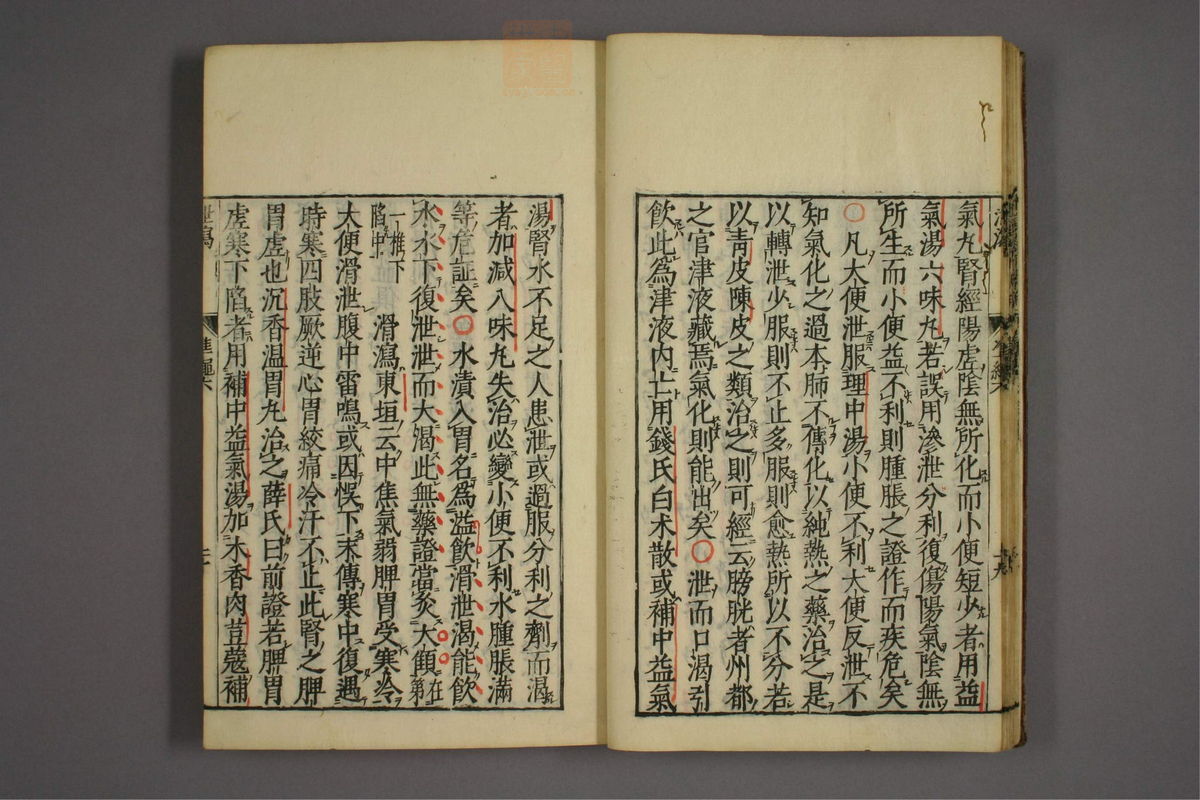 氣丸腎經陽虛陰無所化而小便短少者用益
氣湯六味丸若誤用滲泄分利復傷陽氣陰無
所生而小便益不利則腫脹之證作而疾危矣
〇凡大便泄服理中湯小便不利大便反泄不
知氣化之過本肺不傳化以純熱之藥治之是
以轉泄少服則不止多服則愈熱所以不分若
以青皮陳皮之類治之則可經云膀胱者州都
之官津液藏焉氣化則能出矣〇泄而口渴引
飲此為津液內亡用錢氏白朮散或補中益氣
湯腎水不足之人患泄或過服分利之劑而渴
者加減八味丸失治必變小便不利水腫脹滿
等危証矣〇水漬入胃名為溢飲滑泄渴能飲
水水下復泄泄而大渴此無藥證當灸大顀在第
一椎下陷中 滑瀉東垣云中焦氣弱脾胃受寒冷
大便滑泄腹中雷鳴或因悞下末傳寒中復遇
時寒四肢厥逆心胃絞痛冷汗不止此腎之脾
胃虛也沉香温胃丸治之薛氏曰前證若脾胃
虛寒下陷者用補中益氣湯加木香肉荳蔻補